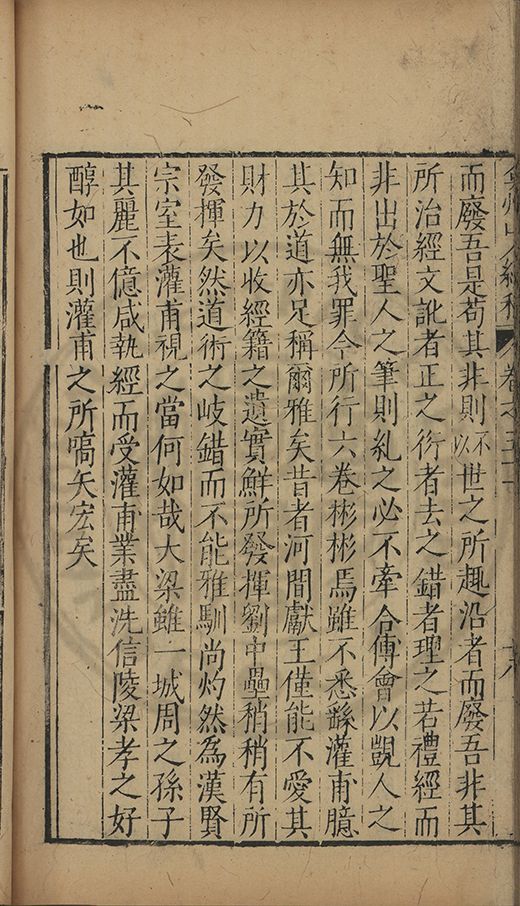 而廢吾是苟其非則不以世之所趣沿者而廢吾非其
所治經文訛者正之衍者去之錯者理之若禮經而
非出於聖人之筆則糺之必不牽合傅會以覬人之
知而無我罪今所行六卷彬彬焉雖不悉繇灌甫臆
其於道亦足稱爾雅矣昔者河間獻王僅能不愛其
財力以收經籍之遺實鮮所發揮劉中壘稍稍有所
發揮矣然道術之岐錯而不能雅馴尚灼然為漢賢
宗室表灌甫視之當何如哉大梁雖一城周之孫子
其麗不億咸執經而受灌甫業盡洗信陵梁孝之好
醇如也則灌甫之所嗃矢宏矣